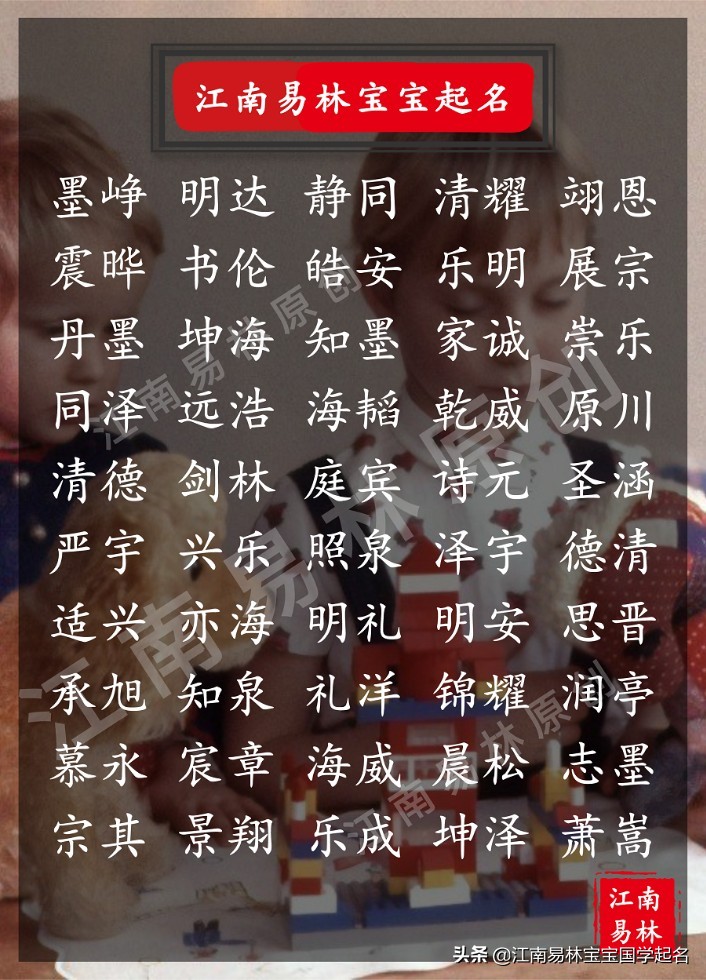 江南易林宝宝起名
墨峥 明达 静同 清耀 翊恩
震晔 书伦 皓安 乐明 展宗
丹墨 坤海 知墨 家诚 崇乐
同泽 远浩 海韬 乾威 原川
清德 剑林 庭宾 诗元 圣涵
严宇 兴乐 照泉 泽宇 德清
适兴 亦海 明礼 明安 思晋
承旭 知泉 礼洋 锦耀 润亭
慕永 宸章 海威 晨松 志墨
宗其 景翔 乐成 坤泽 萧嵩
江南易林原创
江南易林原创
江南易林原创
江南
易林
头条 @江南易林宝宝国学起名